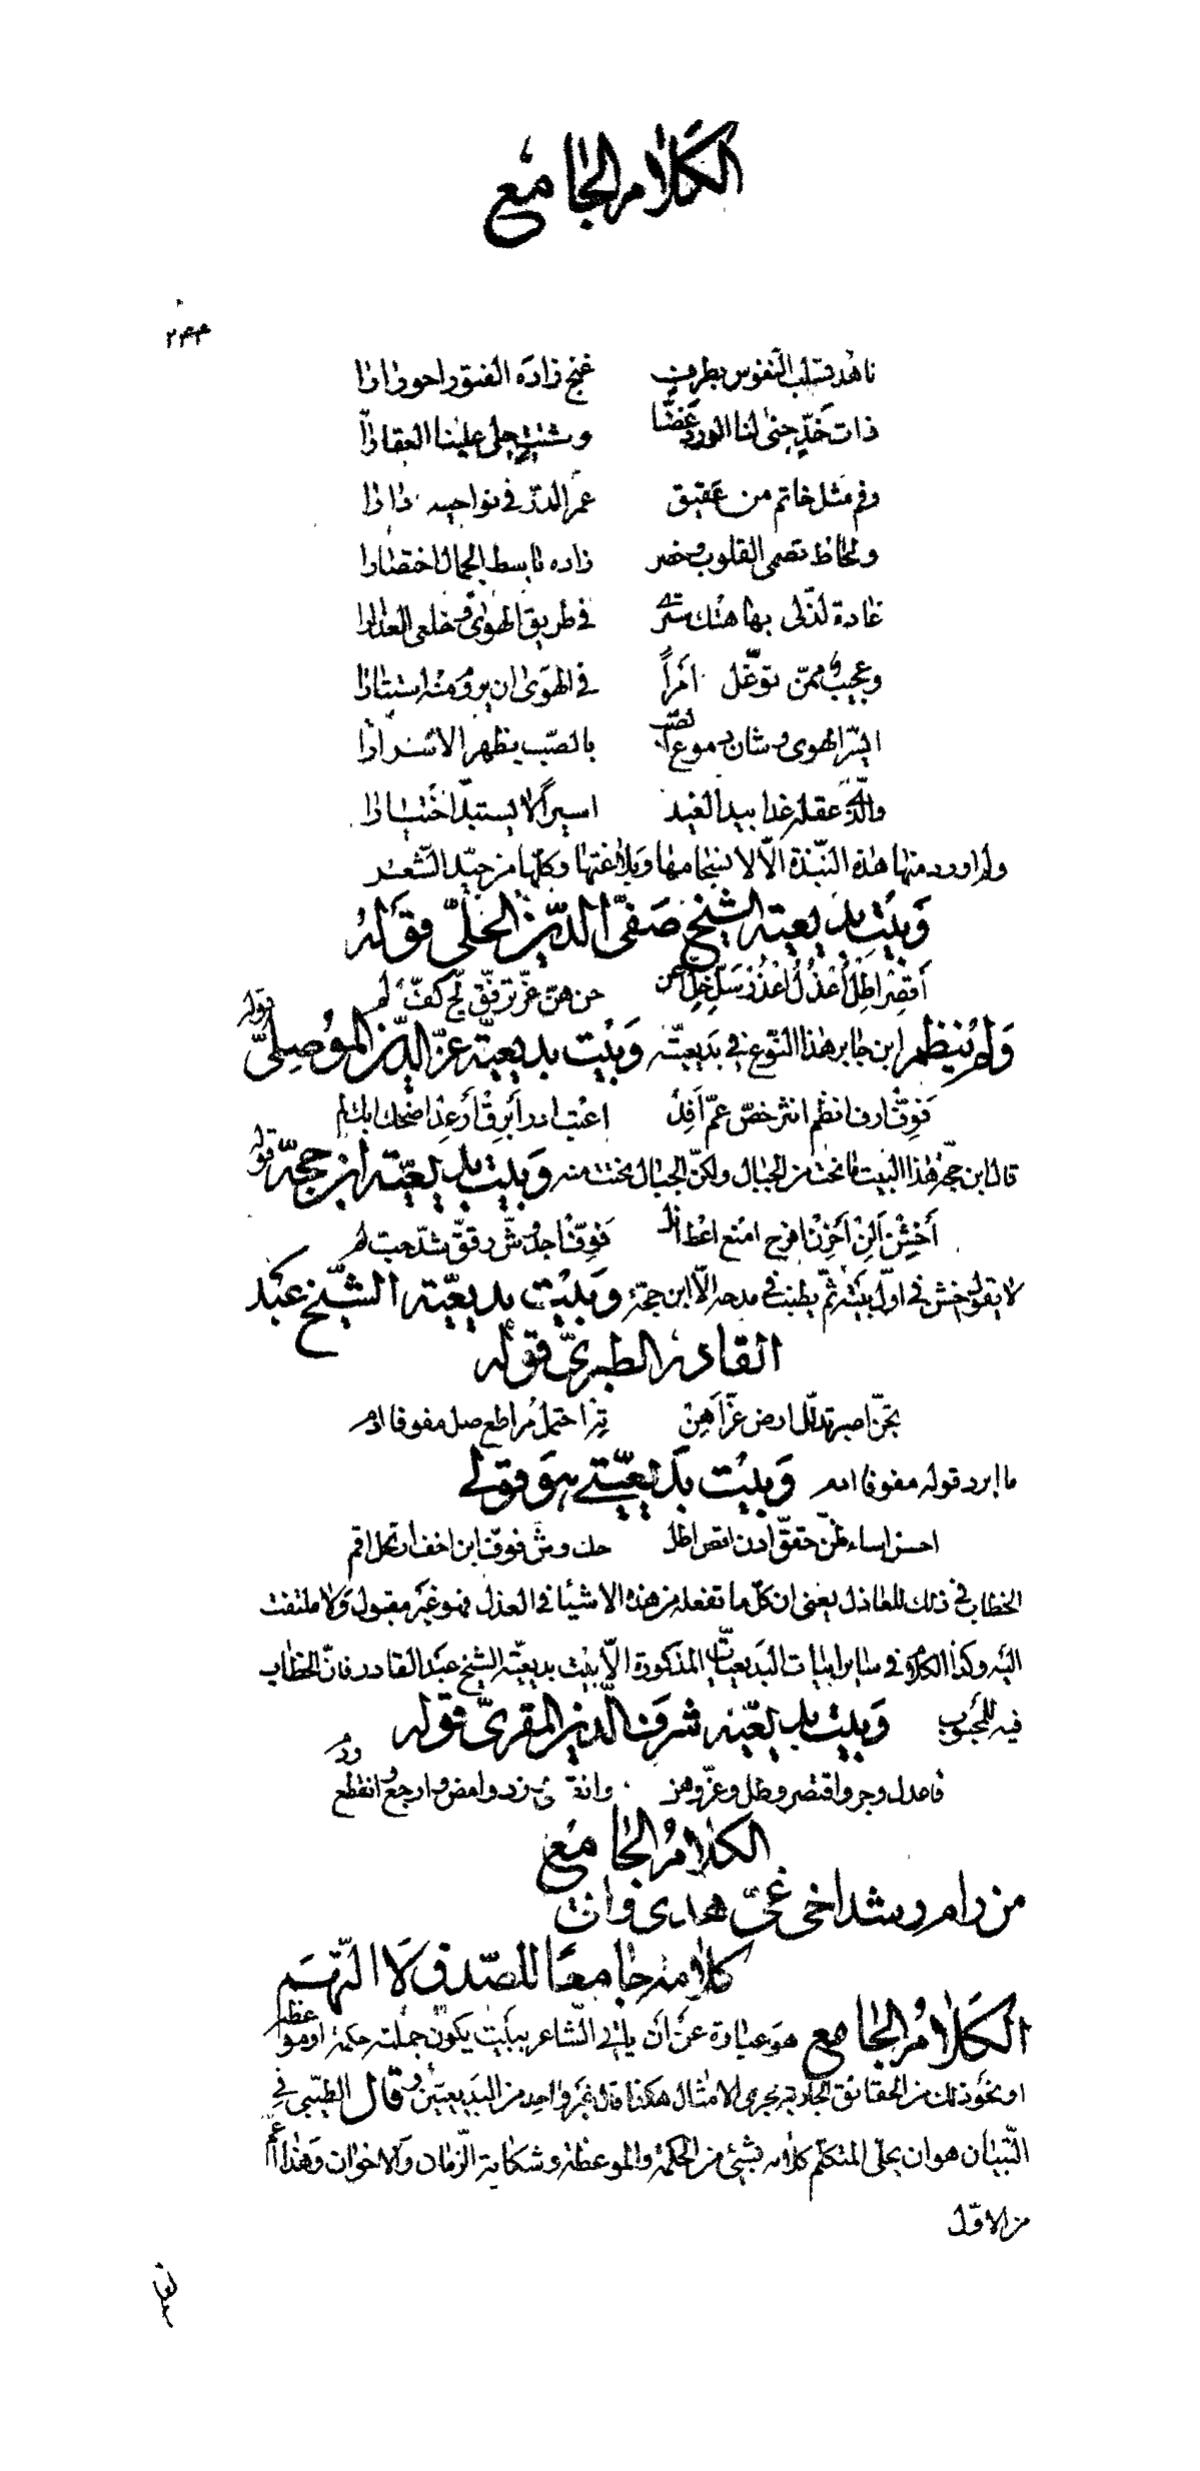 الكلام الجامع
٢٤٤
ناهد تسلب النفوس بطرف غنج زاده الفتور احورارا
ذات خدّ جنى لنا الورد غضّا وشتيت جلى علينا العقارا
وفم مثل خاتم من عقيق عمر الدرّ في نواحيه دارا
ولحاظ تصمى القلوب وخصر زاده باسط الجمال اختصارا
غادة لذّ لى بها هتك سترى في طريق الهوى وخلعى العذارا
وعجيب ممّن توغّل امراً في الهوى ان يروم منه استتارا
ايسرّ الهوى وشان دموع الصّب بالصّب يظهر الاسرارا
والّذى عقله غدا بيد الغيد اسيراً لا يستبدّ اختيارا
ولم اورد منها هذه النّبذة الّا لانسجامها وبلاغتها وكلّها من جيّد الشّعر
وَبيت بديعيته الشيخ صَفىّ الدّين الحلّىّ قوله
أقصر اطل أعذل اعذر سَلّ خلّ أعن خن هن عزّ ترفّق لجّ كفّ لم
وَلم ينظم ابن جابر هذا النّوع في بَديعيّته وَبَيت بديعيّة عزّ الدّين الموصلىّ قوله
فَوِّف ارف انظم انثر خصّ عمّ أفد اعتب ادر أبرق أرعد اضحك ابك لم
قال ابن حجّة هذا البيت ما نحت من الجبال ولكنّ الجبال نحتت منه وَبَيت بديعيّة ابن حجّة قوله
أخشن ألن أحزن افرح امنع اعط انل فوّف اجد وشّ رقّق شدّ حبّ لم
لا يقول اخشن في اوّل بيته ثمّ يطنب في مدحه الّا ابن حجّة وَبَيت بديعيّة الشّيخ عَبد
القادر الطبرىّ قوله
تجنّ اصبر تدلّل ارض عزّ أهن ته احتمل مر اطع صل مفوفا ادم
ما ابرد قوله مفوفا ادم وَبَيت بَديعيّتى هوَ قولى
احسن اسأ ظنّ حقّق ادن اقص اطل حك وشّ فوّف ابن اخف ارتحل اقم
الخطاب في ذلك للعاذل يعنى ان كلّ ما تفعله من هذه الاشيأ في العذل فهو غير مقبول وَلا ملتفت
اليه وكذا الكلام في ساير ابيات البَديعيّات المذكورة الّا بيت بديعيّة الشيخ عبد القادر فانّ الخطاب
فيه للمحبوب وَبيت بديعيّة شرف الدّين المقرىّ قوله
فاعدل وجر واقتصر وطل وعزّ وهن وانقص وزد وامض وارجع وانقطع ودُم
الكلامُ الجامع
من رام رشد اخى غىّ هدى واتى
كلامه جامعًا للصّدق لا التّهم
الكَلامُ الجامع هوَ عبارة عن أن ياتى الشّاعر ببَيت يكون جملته حكمة او موعظة
او نحو ذلك من الحقائق الجارية مجرى الامثال هكذا قال غير واحد من البَديعيّين وقال الطيّبى في
التّبيان هو ان يحلّى المتكلّم كلامه بشيئ من الحكمة والموعظة وشكاية الزّمان وَالاخوان وَهذا اعمّ
من الاوّل